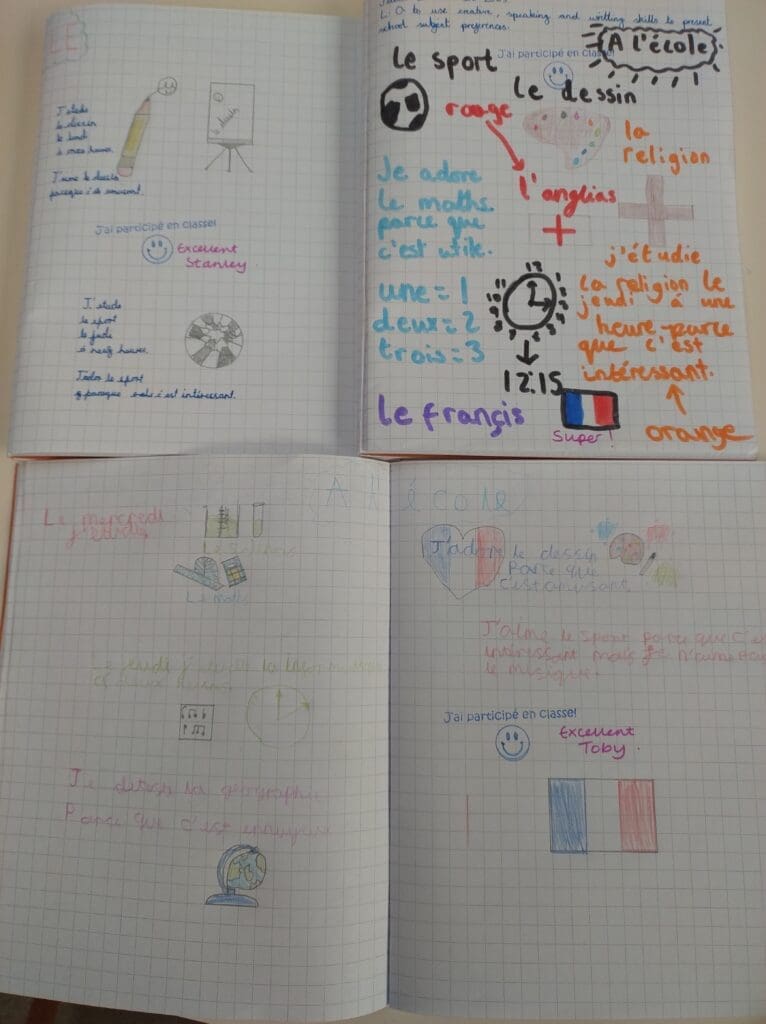 LE
J'étude
le dessin
le lundi
à onze heures.
J'aime le dessin
parceque c'est amusant.
le dessin
J'ai participé en classe!
Excellent
Stanley.
J'étude
le sport
le jeudi
à neuf heures.
J'adore le sport
parceque c'est intéressant.
L.O to use creative, speaking and writting skills to present
school subject preferences.
J'ai participé en classe!
A l'école
le sport
le dessin
rouge
la
religion
l'anglias
Je adore
le maths
parce que
c'est utile.
j'étudie
la religion le
jeudi à une
heure parce
que c'est
intéressant.
une = 1
deux = 2
trois = 3
12:15
le françis
Super!
orange
A l'école
Le mercredi
j'étudie
Le maths
J'adore le dessin
Parce que
c'est amusant
J'aime le sport parce que c'est
intéressant mais je n'aime
le musique.
jeudi
J'ai participé en classe!
Excellent
Toby.
Je déteste la géographie
Parce que c'est ennuyeux